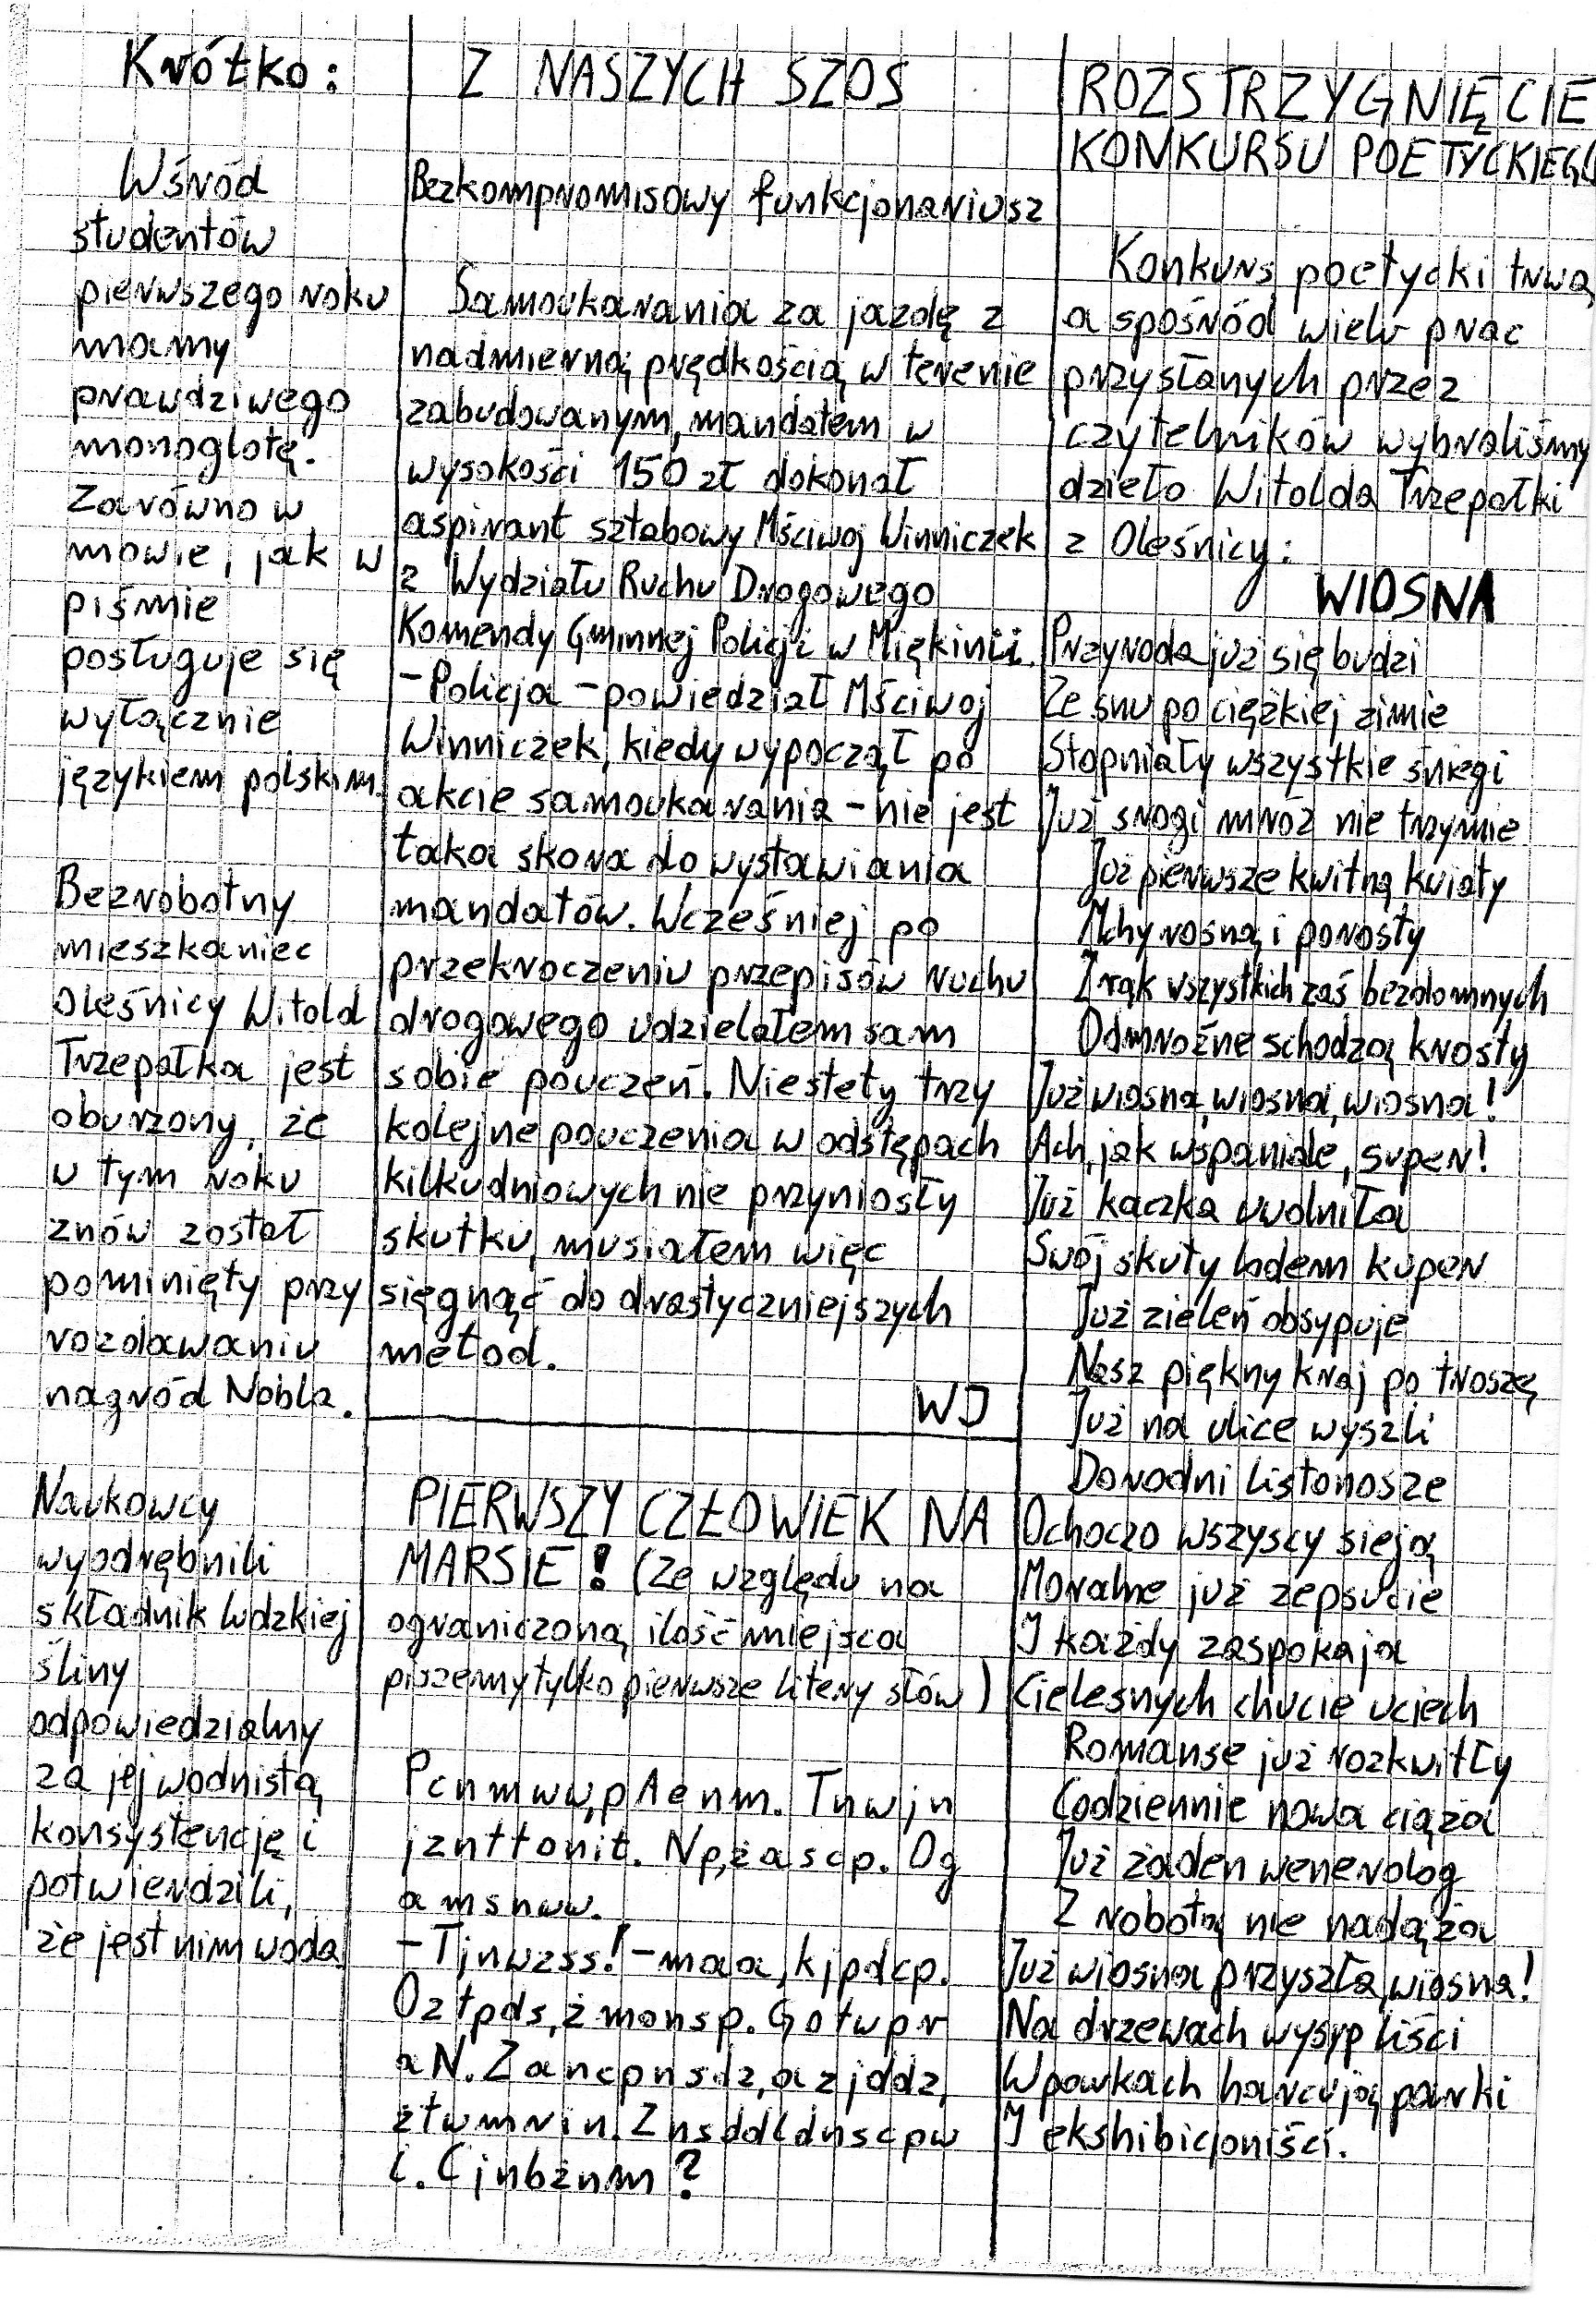 Krótko:
Wśród
studentów
pierwszego roku
mamy
prawdziwego
monoglotę.
Zarówno w
mowie, jak w
piśmie
posługuje się
wyłącznie
językiem polskim.
Bezrobotny
mieszkaniec
Oleśnicy Witold
Trzepałka jest
oburzony, że
w tym roku
znów został
pominięty przy
rozdawaniu
nagród Nobla.
Naukowcy
wyodrębnili
składnik ludzkiej
śliny
odpowiedzialny
za jej wodnistą
konsystencję i
potwierdzili,
że jest nim woda
Z NASZYCH SZOS
Bezkompromisowy funkcjonariusz
Samoukarania za jazdę z
nadmierną prędkością w terenie
zabudowanym, mandatem w
wysokości 150 zł dokonał
aspirant sztabowy Mściwoj Winniczek
z Wydziału Ruchu Drogowego
Komendy Gminnej Policji w Miękinii.
- Policja - powiedział Mściwoj
Winniczek, kiedy wypoczął po
akcie samoukarania - nie jest
taka skora do wystawiania
mandatów. Wcześniej po
przekroczeniu przepisów ruchu
drogowego udzielałem sam
sobie pouczeń. Niestety trzy
kolejne pouczenia w odstępach
kilkudniowych nie przyniosły
skutku, musiałem więc
sięgnąć do drastyczniejszych
metod.
WJ
PIERWSZY CZŁOWIEK NA
MARSIE! (Ze względu na
ograniczoną ilość miejsca
piszemy tylko pierwsze litery słów)
Pcnmww,pAenm. Tnwjn
jznttonit. Np,żascp. Og
amsnww.
- Tjnwzss! - maa, kjpdcp.
Oztpds, żmonsp. Gotwpr
aN. Zancpnsdz, azjddz,
żtwmrin. Znsddldnscpw
c. Cjnbżnm?
ROZSTRZYGNIĘCIE
KONKURSU POETYCKIEGO
Konkurs poetycki trwa,
a spośród wielu prac
przysłanych przez
czytelników wybraliśmy
dzieło Witolda Trzepałki
z Oleśnicy:
WIOSNA
Przyroda już się budzi
Ze snu po ciężkiej zimie
Stopniały wszystkie śniegi
Już srogi mróz nie trzymie
Już pierwsze kwitną kwiaty
Mchy rosną i porosty
Z rąk wszystkich zaś bezdomnych
Odmroźne schodzą krosty
Już wiosna, wiosna, wiosna!
Ach, jak wspaniale, super!
Już kaczka uwolniła
Swój skuty lodem kuper
Już zieleń obsypuje
Nasz piękny kraj po troszę
Już na ulice wyszli
Dorodni listonosze
Ochoczo wszyscy sieją
Moralne już zepsucie
I każdy zaspokaja
Cielesnych chucie uciech
Romanse już rozkwitły
Codziennie nowa ciąża
Już żaden wenerolog
Z robotą nie nadąża
Już wiosna przyszła, wiosna!
Na drzewach wysyp liści
W parkach harcują parki
I ekshibicjoniści.